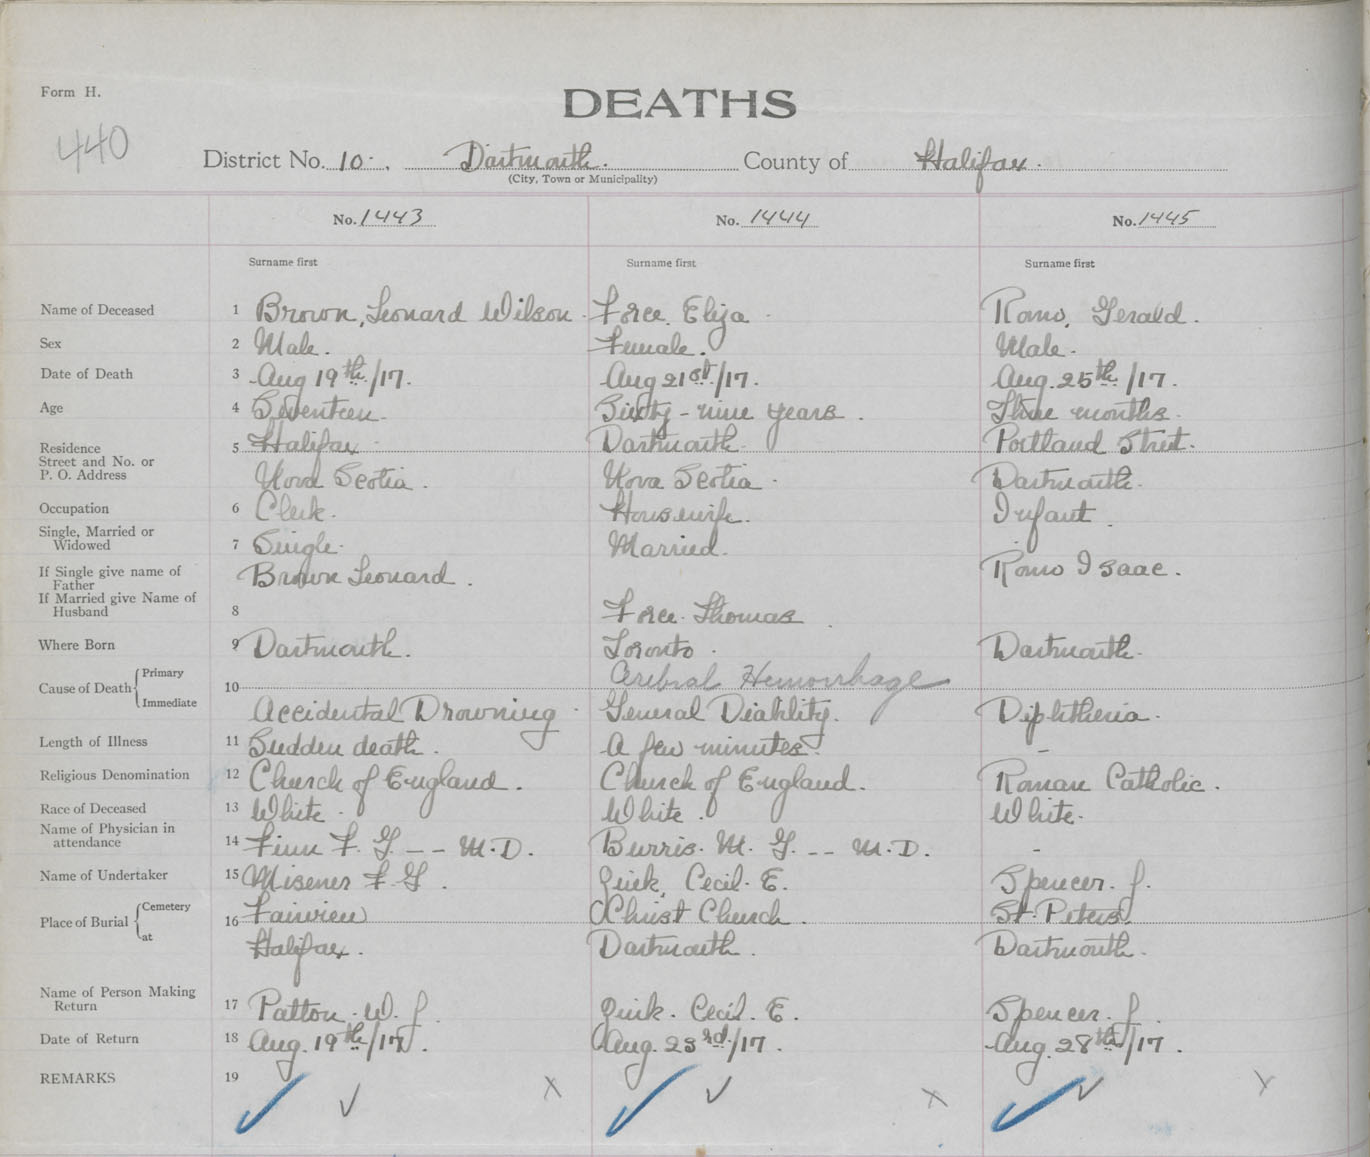 Form H.
DEATHS
440
District No. 10. Dartmouth. County of Halifax.
(City, Town or Municipality)
No. 1443 No. 1444 No. 1445
Surname first Surname first Surname first
Name of Deceased 1 Brown, Leonard Wilson Force, Eliza Romo, Gerald.
Sex 2 Male. Female. Male.
Date of Death 3 Aug 19th/17. Aug 21st/17. Aug. 25th/17.
Age 4 Seventeen. Sixty-nine years. Three months.
Residence 5 Halifax Dartmouth. Portland Street.
Street and No. or
P. O. Address Nova Scotia. Nova Scotia. Dartmouth.
Occupation 6 Clerk. Housewife. Infant.
Single, Married or
Widowed 7 Single. Married.
If Single give name of
Father Brown Leonard. Romo Isaac.
If Married give Name of
Husband 8 Force. Thomas
Where Born 9 Dartmouth. Toronto. Dartmouth.
Cause of Death Primary 10 Cerebral Hemorrhage
Immediate Accidental Drowning General Diability. Diphtheria.
Length of Illness 11 Sudden death. A few minutes. -
Religious Denomination 12 Church of England. Church of England. Roman Catholic.
Race of Deceased 13 White. White. White.
Name of Physician in
attendance 14 Finn F. G -- M.D. Burris. M. G. -- M.D. -
Name of Undertaker 15 Misener F. G. Zink, Cecil. E. Spencer. J.
Place of Burial Cemetery 16 Fairview Christ Church. St. Peters.
at Halifax. Dartmouth. Dartmouth.
Name of Person Making
Return 17 Patton. W. J. Zink. Cecil. E. Spencer. J.
Date of Return 18 Aug. 19th/17. Aug. 23rd/17. Aug. 28th/17.
REMARKS 19